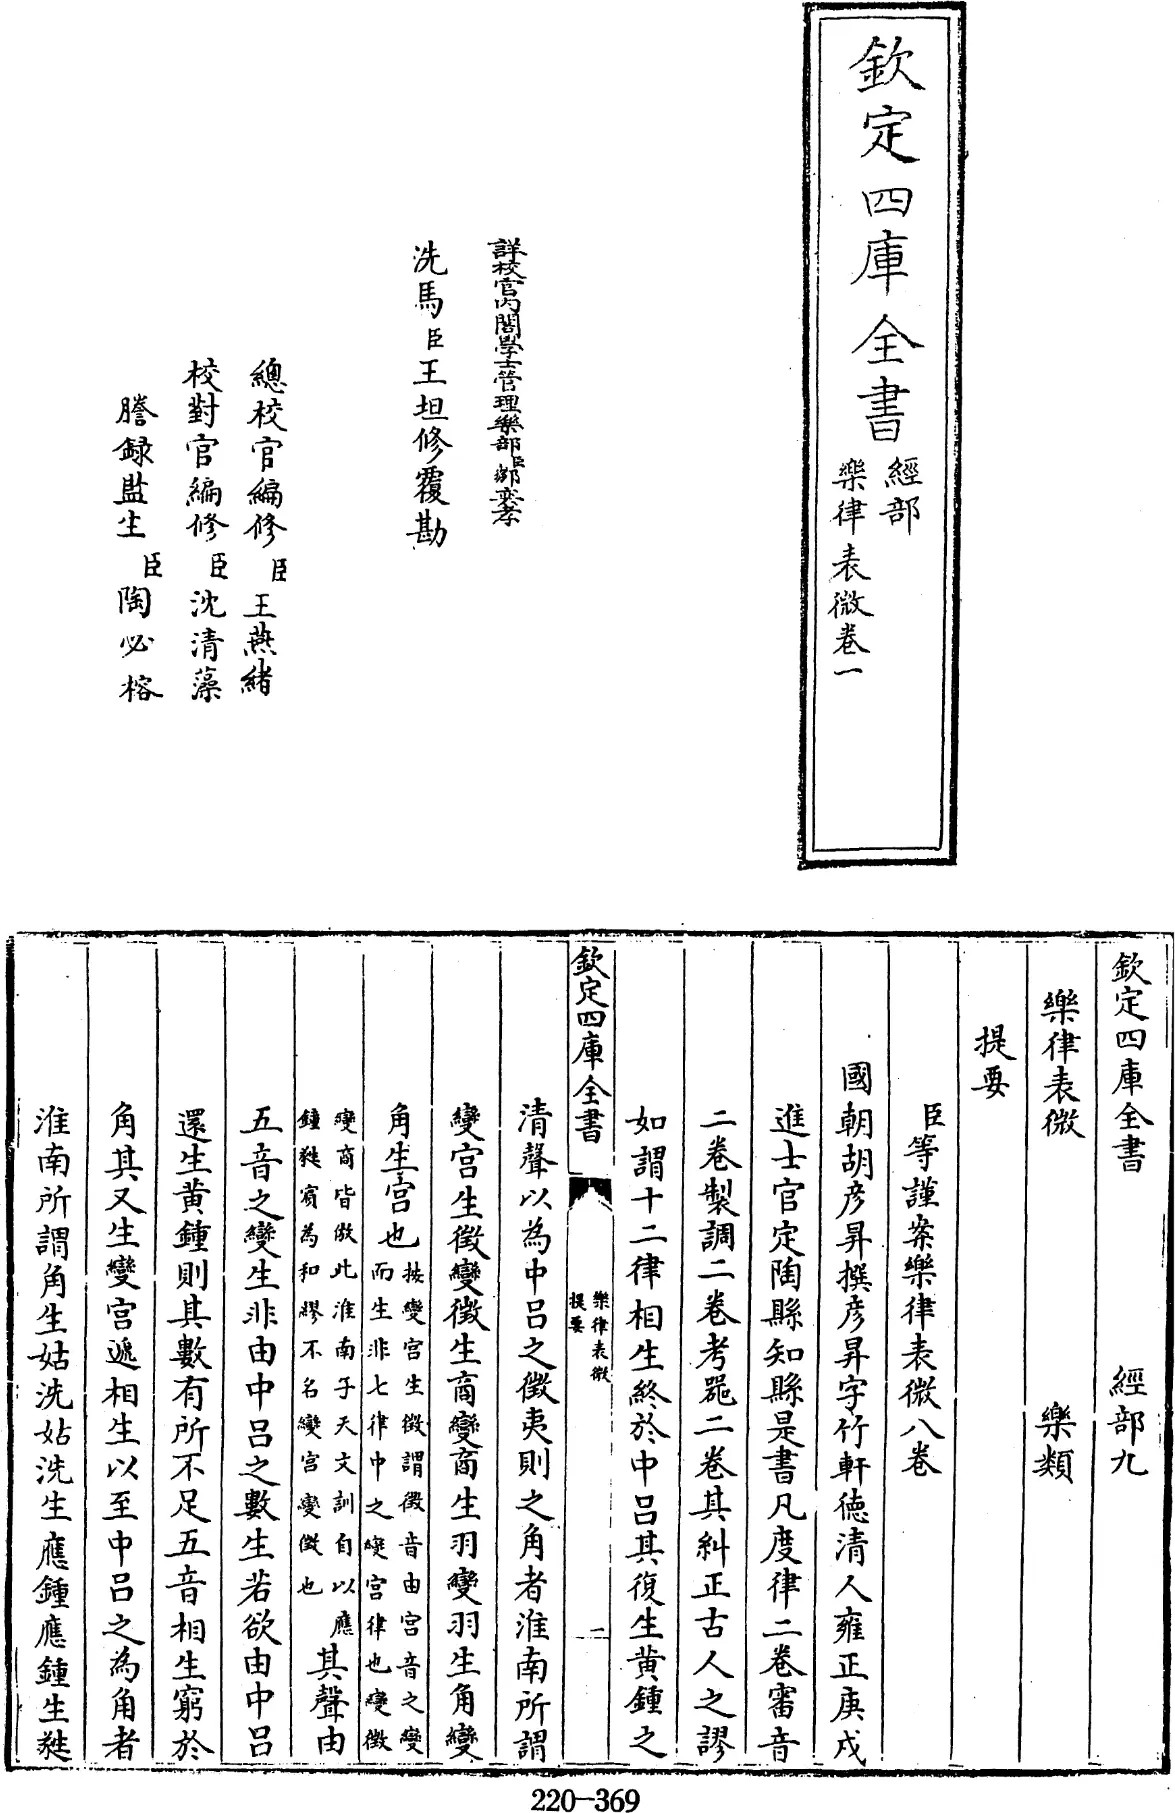 欽定四庫全書
經部
樂律表微卷一
詳校官內閣學士管理樂部臣鄒奕孝
洗馬臣王坦修覆勘
總校官編修臣王燕緒
校對官編修臣沈清藻
謄録監生臣陶必榕
欽定四庫全書　經部九
樂律表微　樂類
提要
臣等謹案樂律表微八卷
國朝胡彦昇撰彦昇字竹軒德清人雍正庚戌
進士官定陶縣知縣是書凡度律二卷審音
二卷製調二卷考器二卷其糾正古人之謬
如謂十二律相生終於中吕其復生黄鍾之
欽定四庫全書
樂律表微
提要
二
清聲以為中吕之徵夷則之角者淮南所謂
變宫生徵變徵生商變商生羽變羽生角變
角生宫也按變宫生徵謂徵音由宫音之變
而生非七律中之變宫律也變徵
變商皆倣此淮南子天文訓自以應
鐘蕤賓為和繆不名變宫變徵也其聲由
五音之變生非由中吕之數生若欲由中吕
還生黄鍾則其數有所不足五音相生窮於
角其又生變宫遞相生以至中吕之為角者
淮南所謂角生姑洗姑洗生應鍾應鍾生蕤
220-369